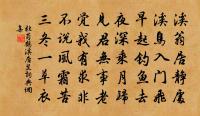 溪翁居靜處
溪鳥入門飛
早起釣魚去
夜深乘月歸
見君無事老
覺我有求非
不說風霜苦
三冬一草衣
杜荀鶴溪居叟詩